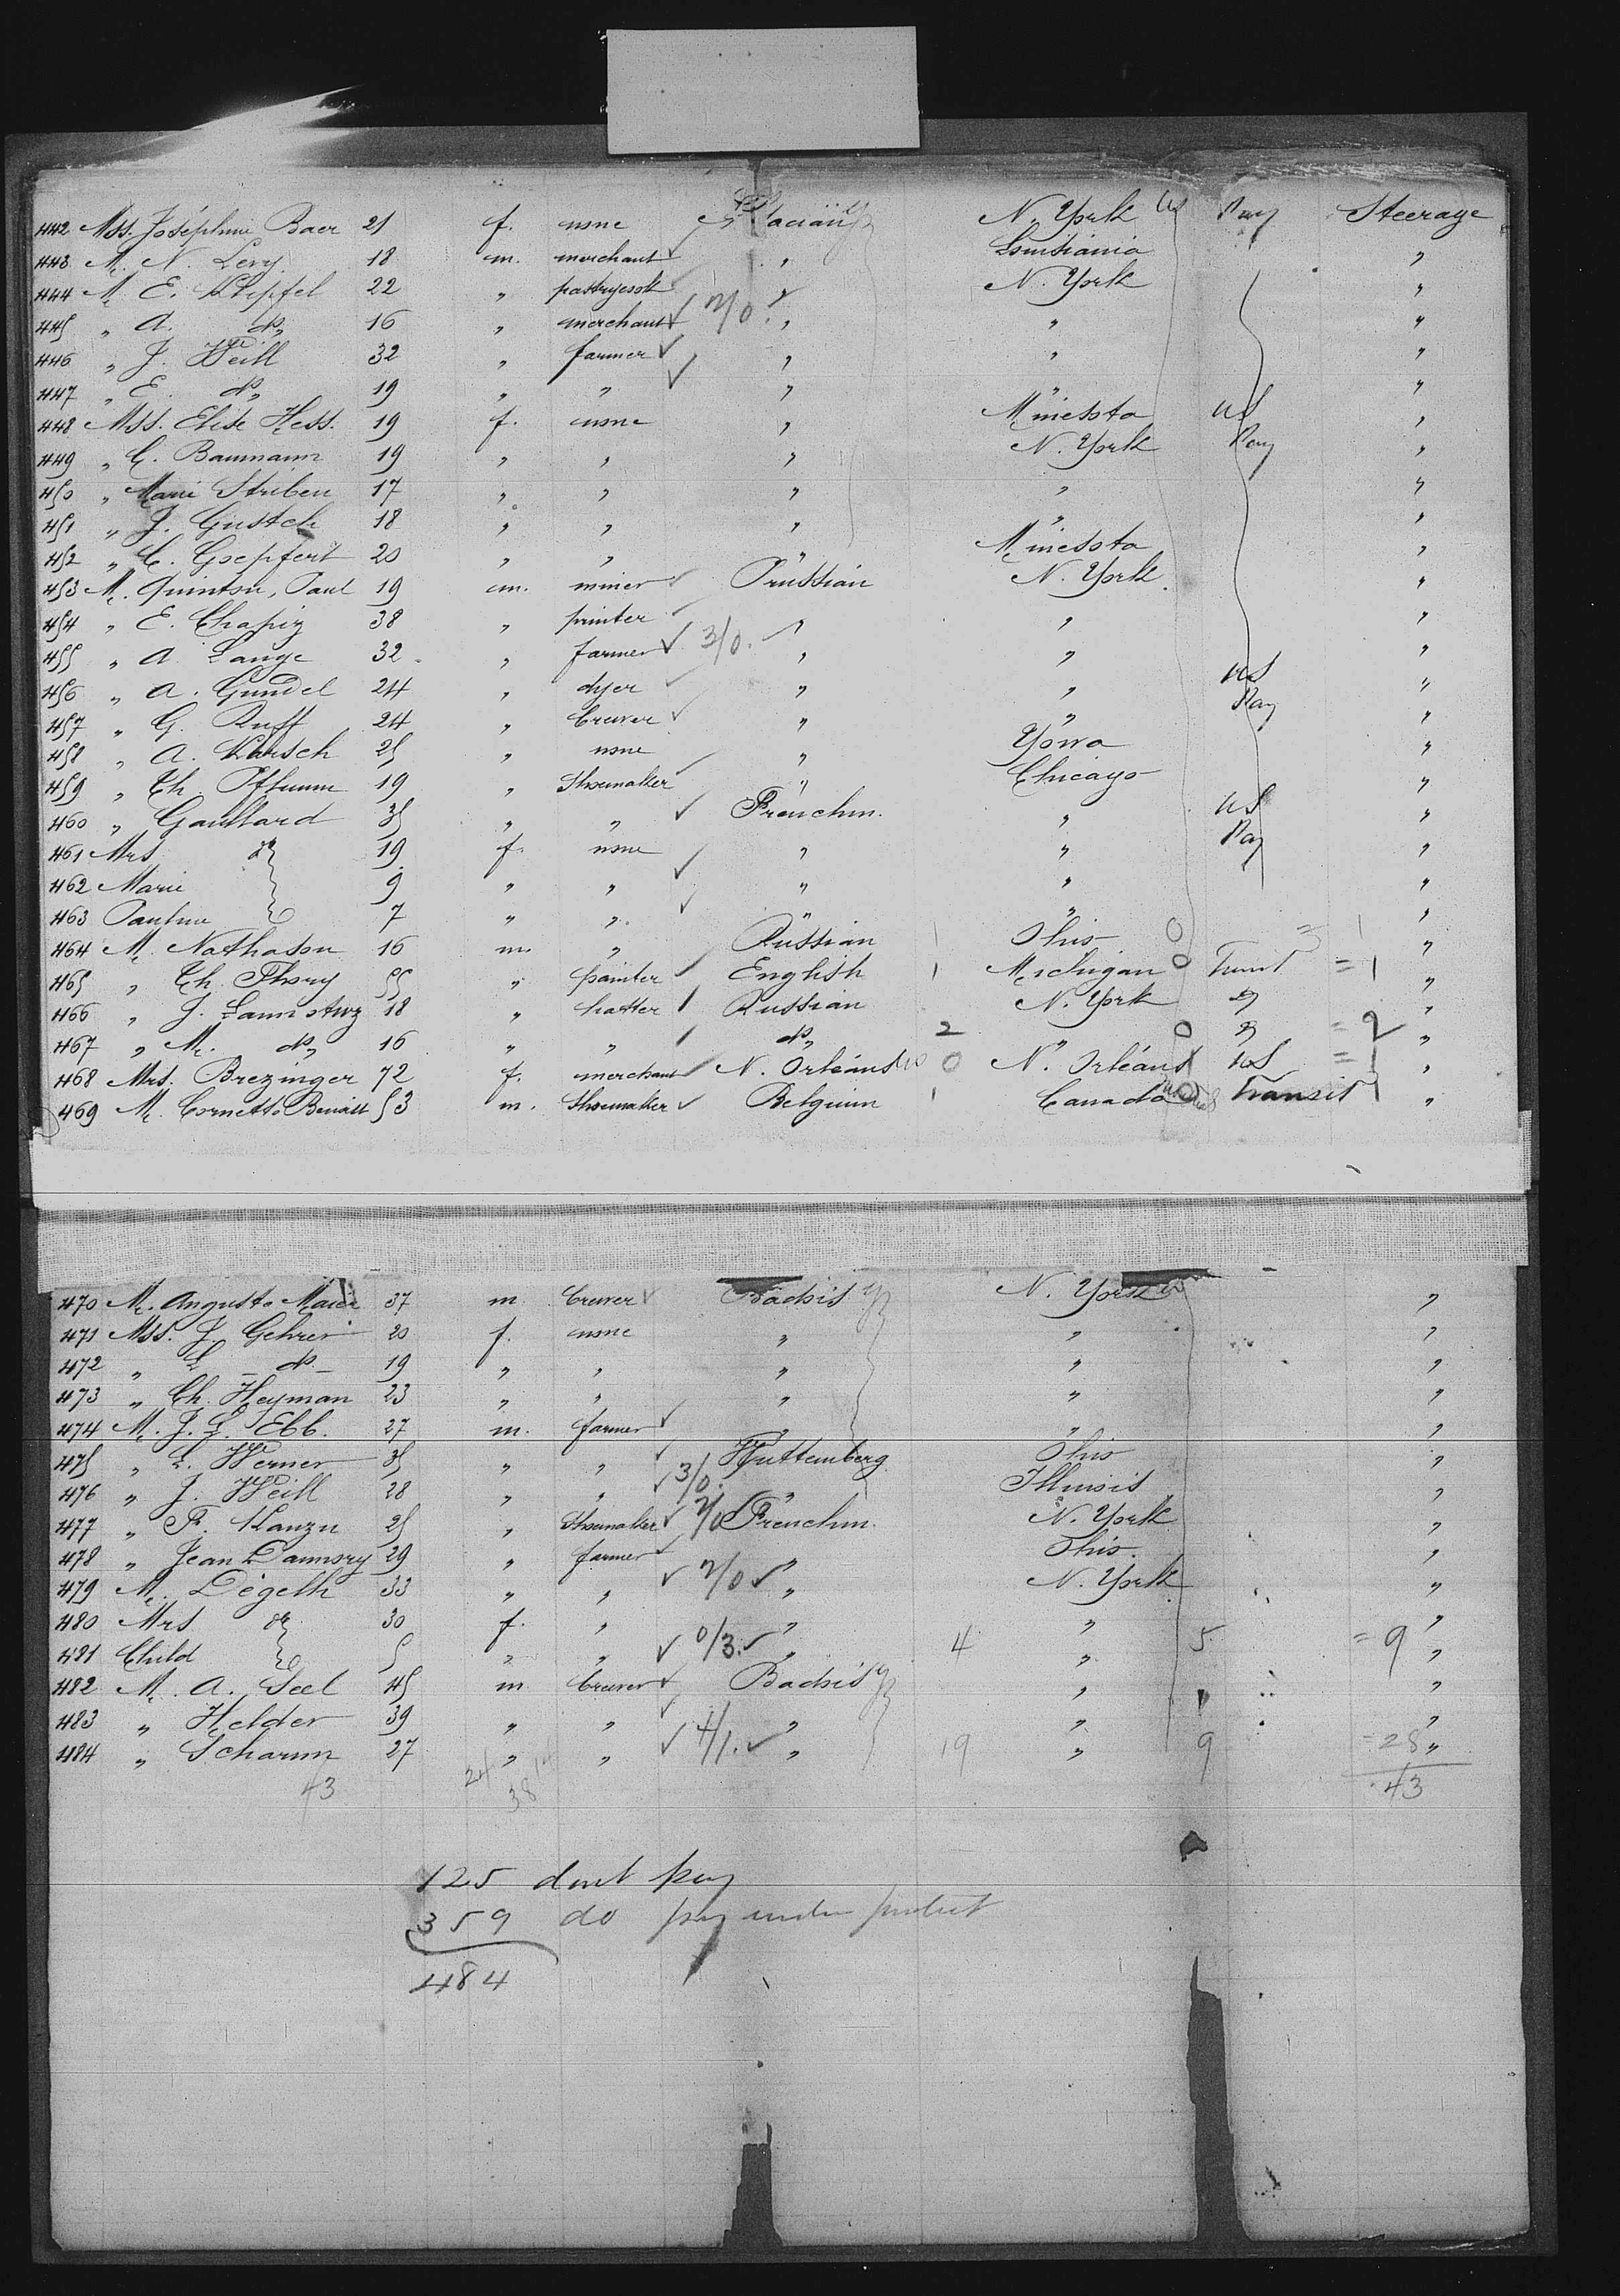 442 Mss. Joséphine Baer 21 f. none N. York US Pay Steerage
443 M. N. Levy 18 m. merchant " Louisiania "
444 M. E. Klipfel 22 " pastrycook " N. York "
445 " A. do 16 " merchant 2/0. " " "
446 " J. Weill 32 " farmer " " "
447 " E. do 19 " " " " "
448 Mss. Elise Hess. 19 f. none " Minessota US "
449 " C. Baumann 19 " " " N. York Pay "
450 " Marie Striben 17 " " " " "
451 " J. Gustch 18 " " " " "
452 " C. Goepfert 20 " " " Minessota "
453 M. Quinton, Paul 19 m. miner Prussian N. York. "
454 " E. Chapiz 38 " printer " " "
455 " A. Lange 32 " farmer 3/0. " " "
456 " A. Gundel 24 " dyer " " US "
457 " G. Ruff 24 " brewer " " Pay "
458 " A. Karsch 25 " none " Yowa "
459 " Ch. Pflumm 19 " Shoemaker " Chicago "
460 " Gaullard 35 " " Frenchm. " US "
461 Mrs do 19 f. none " " Pay "
462 Marie 9 " " " " "
463 Pauline 7 " " " " "
464 M. Nathason 16 m. " Russian 1 Ohio 0 "
465 " Ch. Thory 55 " painter English 1 Michigan 0 Transit = 1 "
466 " J. 18 " hatter Russian N. York "
467 " M. do 16 " " do 2 " 0 = 2 "
468 Mrs. Brezinger 72 f. merchant N. Orléans 0 N. Orléans 1 US = 1 "
469 M. Cornetto Benoist 53 m. Shoemaker Belgium 1 Canada 0 Transit 1 "
470 M. Auguste Maier 37 m brewer Badois N. York "
471 Mss. J. Gehrer 20 f. none " " "
472 " L do 19 " " " " "
473 " Ch. Heyman 23 " " " " "
474 M. J. G. Ebb. 27 m. farmer " " "
475 " L. Werner 35 " " Wuttemberg Ohio "
476 " J. Weill 28 " " 3/0. " Illinois "
477 " F. Kanzu 25 " Shoemaker 1/0 Frenchm. N. York "
478 " Jean Dannory 29 " farmer " Ohio. "
479 M. Dégelh 33 " " 2/0 " N. York "
480 Mrs do 30 f. " " " "
481 Child 5 " " 0/3. " 4 " 5 = 9 "
482 M. A. Seel 45 m brewer Badois " "
483 " Helder 39 " " " " "
484 " Scharm 27 " " 4/1. " 19 " 9 = 28 "
43 24 38 43
125 dont pay
359 do pay under protest
484